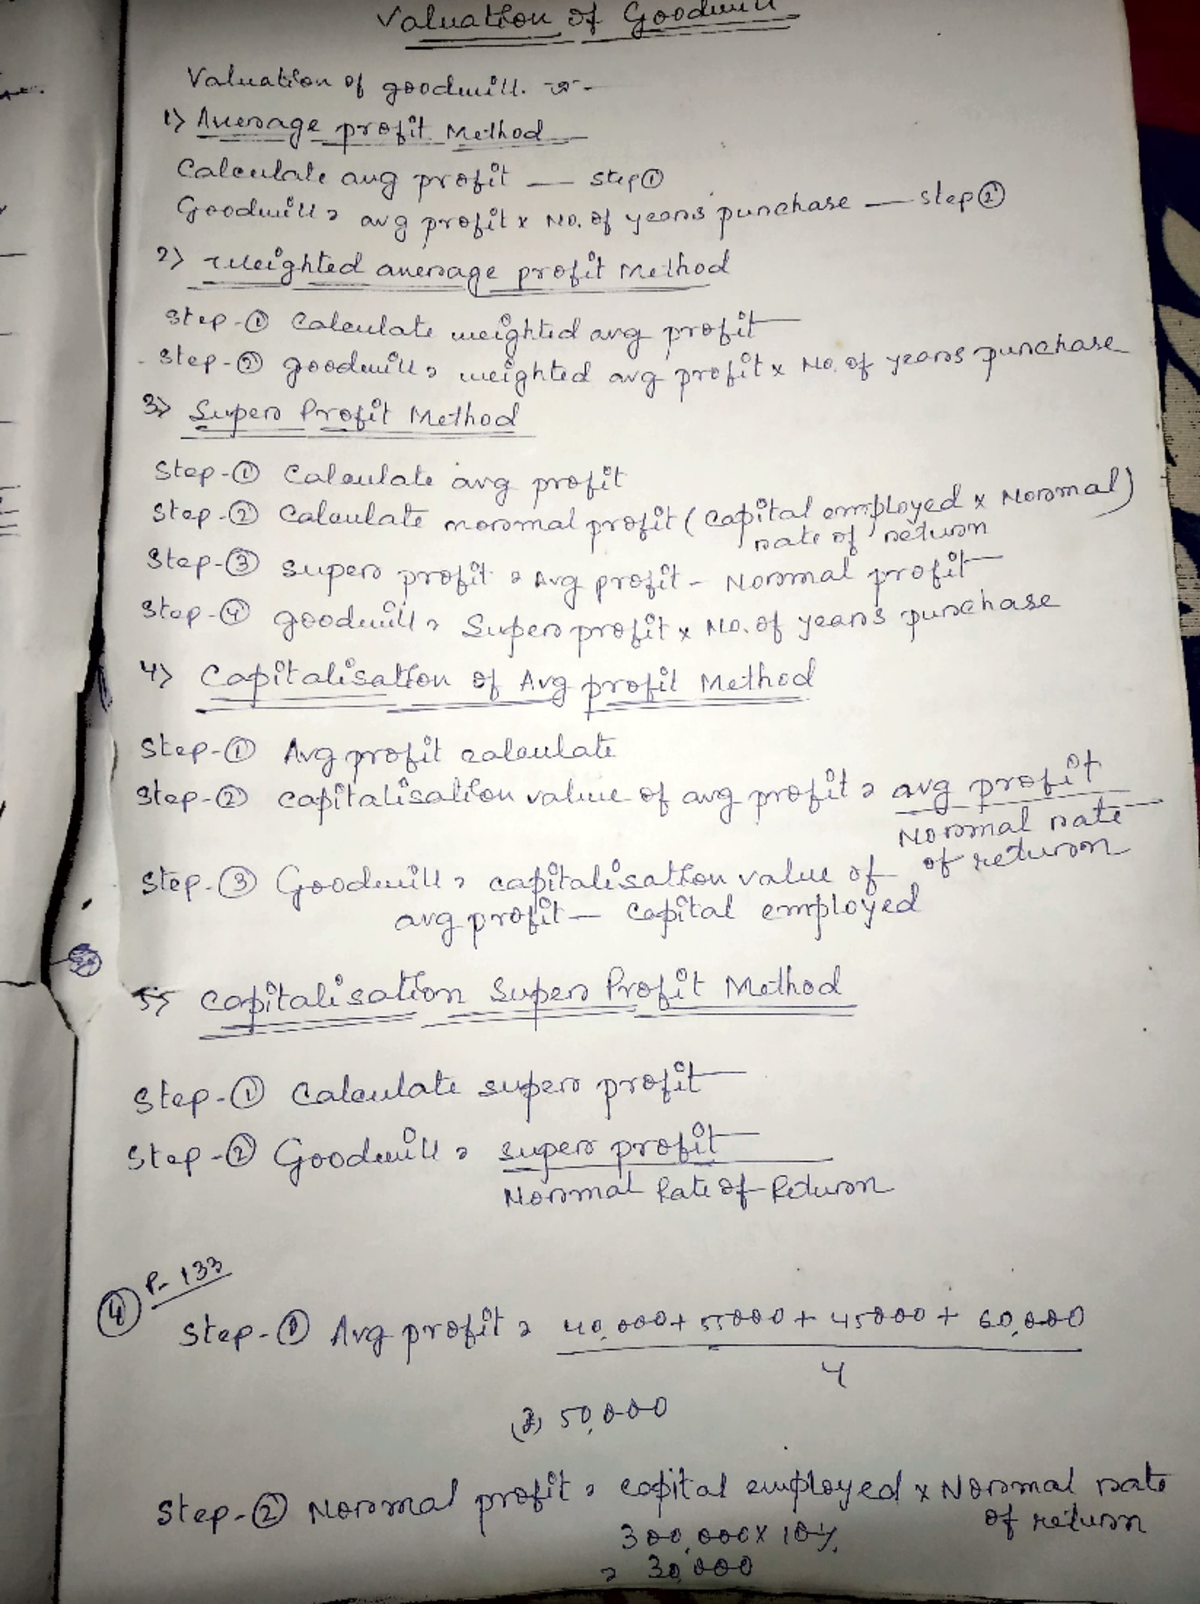 Valuation of Goodwill
Valuation of goodwill. :-
1) Average profit Method
Calculate avg profit — step ①
Goodwill = avg profit x No. of years purchase — step ②
2) Weighted average profit Method
Step-① Calculate weighted avg profit
Step-② goodwill = weighted avg profit x No. of years purchase
3) Super Profit Method
Step-① Calculate avg profit
Step-② Calculate normal profit (Capital employed x Normal)
rate of return
Step-③ super profit = Avg profit - Normal profit
Step-④ goodwill = Super profit x No. of years purchase
4) Capitalisation of Avg profit Method
Step-① Avg profit calculate
Step-② capitalisation value of avg profit = avg profit
Normal rate
of return
Step-③ Goodwill = capitalisation value of
avg profit — Capital employed
5) Capitalisation Super Profit Method
Step-① Calculate super profit
Step-② Goodwill = super profit
Normal Rate of Return
④ P-133
Step-① Avg profit = 40,000+ 55000 + 45000 + 60,000
4
50,000
Step-② Normal profit = capital employed x Normal rate
of return
300,000 x 10%
= 30,000